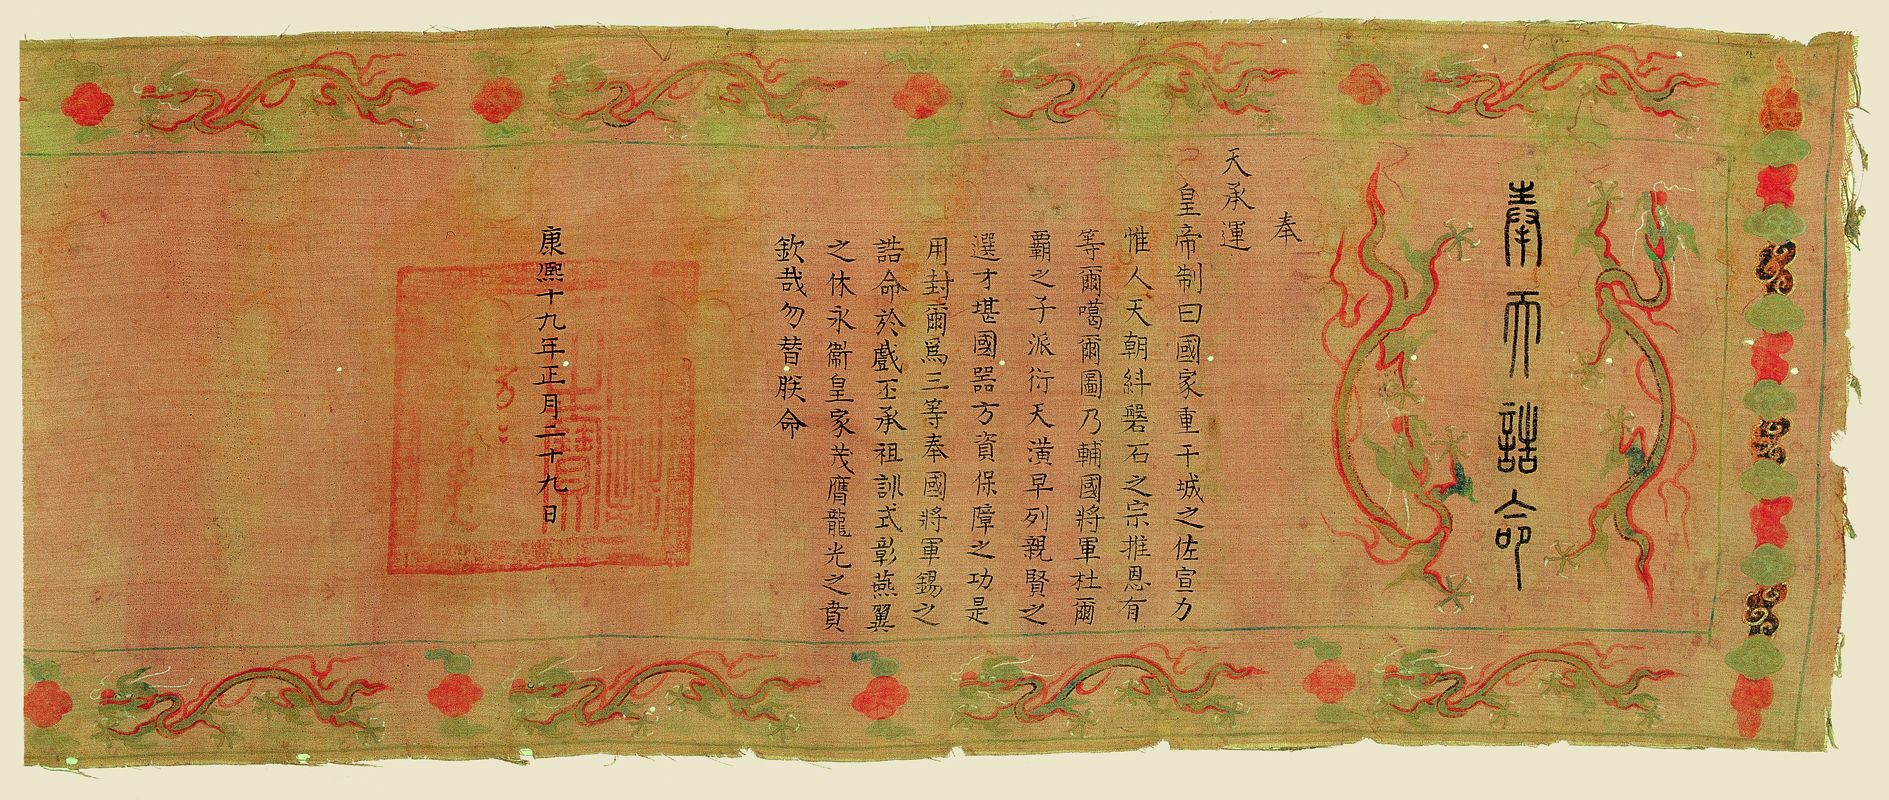 奉天誥命
奉
天承運
皇帝制曰國家重干城之佐宣力
惟人天朝糾磐石之宗推恩有
等爾噶爾圖乃輔國將軍杜爾
霸之子派衍天潢早列親賢之
選才堪國器方資保障之功是
用封爾爲三等奉國將軍錫之
誥命於戲丕承祖訓式彰燕翼
之休永衞皇家茂膺龍光之賁
欽哉勿替朕命
康熙十九年正月二十九日